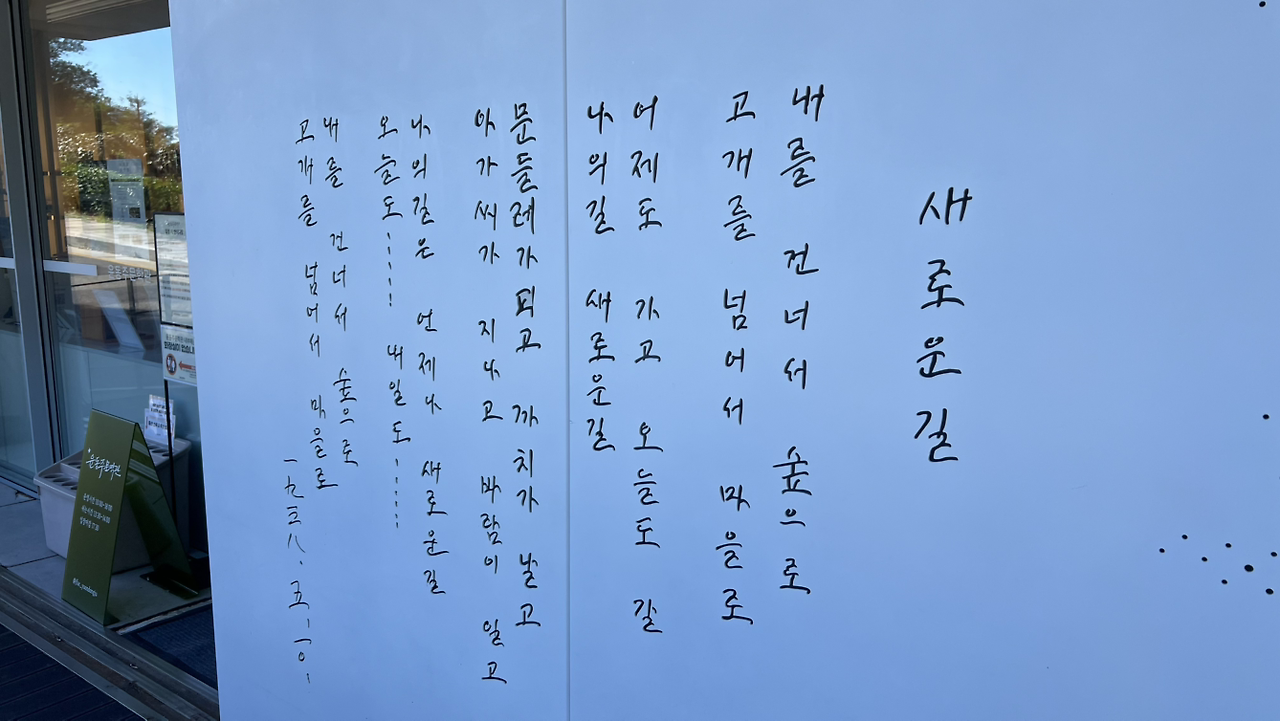 새로운길
내를 건너서 숲으로
고개를 넘어서 마을로
어제도 가고 오늘도 갈
나의길 새로운길
문들레가 피고 까치가 날고
아가씨가 지나고 바람이 일고
나의길은 언제나 새로운길
오늘도..... 내일도......
내를 건너서 숲으로
고개를 넘어서 마을로
一九三八、五、一〇、
윤동주문학관